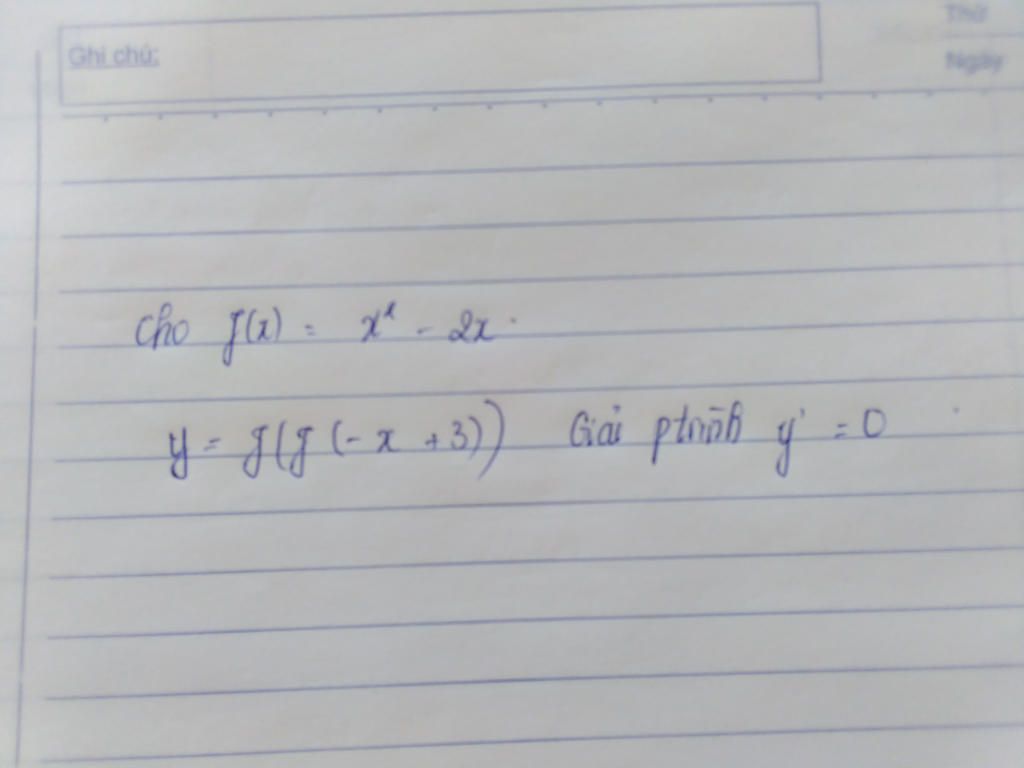 Ghi chú:
Thứ
Ngày
Cho f(x) = x² - 2x.
y = f(f(-x +3)) Giải ptrình y' = 0